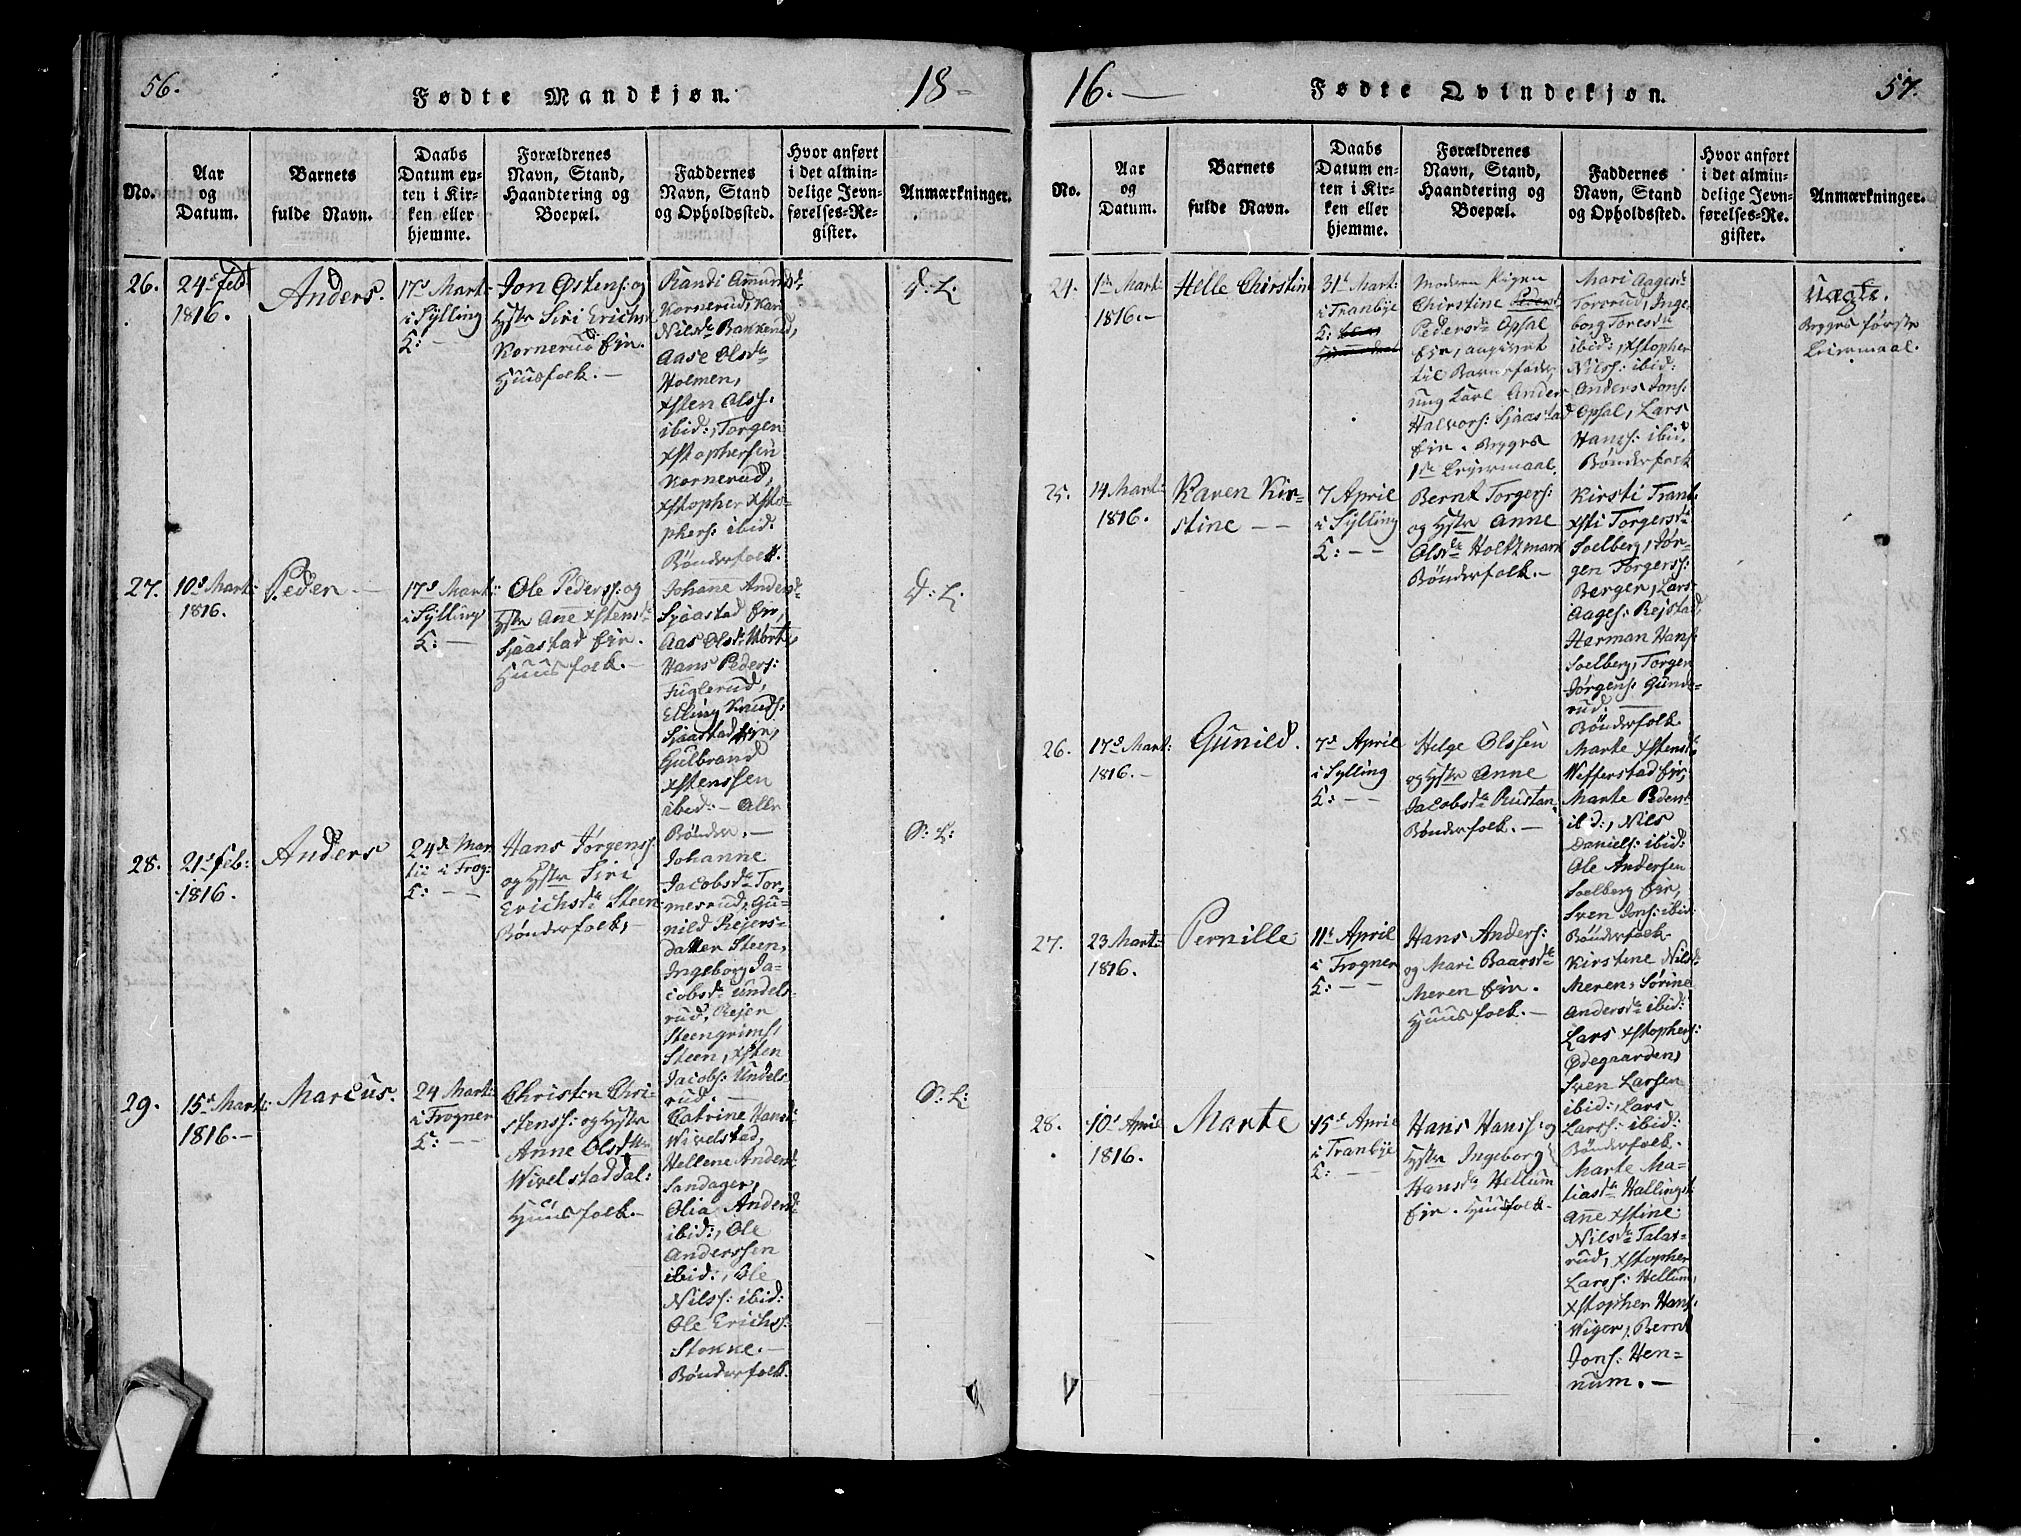 56.
Fødte Mandkjøn.
18-
No.
Aar
og
Datum.
Barnets
fulde Navn.
Daabs
Datum en-
ten i Kir-
ken eller
hjemme.
Forældrenes
Navn, Stand,
Haandtering og
Boepæl.
Faddernes
Navn, Stand
og Opholdssted.
Hvor anført
i det almin-
delige Jevn-
førelses-Re-
gister.
Anmærkninger.
26.
24s Feb
1816.
Anders.
17s Mart:
i Sylling
K: -
Jon Østens: og
Hstr Siri Erichsd
Kornerud Ejr.
Huusfolk. -
Randi Amundsd:
Kornerud, Kari
Nilsdr Bakkerud,
Aase Olsdr
Holmen,
Xsten Olss:
ibid:, Torgen
Xstophersen
Kornerud,
Xstopher Xsto-
phers: ibid:
Bønderfolk.
D: L:
27.
10s Mart:
1816.
Peder -
17s Mart:
i Sylling
K: -
Ole Pederss: og
Hstr Anne Xstensdr
Sjaastad Ejr.
Huusfolk. -
Johanne Andersd
Sjaastad Ejr,
Aas Olsdr Morte,
Hans Peders:
Fuglerud,
Elling Knuds:
Sjaastad Ejr,
Gulbrand
Xstenssen
ibid: - Alle
Bønder. -
D: L:
28.
21s Feb:
1816.
Anders
24de Mar
tii i Frog:
K: - -
Hans Jørgens:
og Hstr Siri
Erichsdr Steen
Bønderfolk,
Johanne
Jacobsdr Tor-
mesrud, Gu-
nild Rejers-
datter Steen,
Ingeborg Ja-
cobsdr Undels-
rud, Rejer
Steengrims:
Steen, Xsten
Jacobs: Undels-
rud. -
S: L:
29.
15de Mart:
1816. -
Marcus.
24 Mart:
i Frogner
K: - -
Christen Chri-
stenss: og Hstr
Anne Olsdtr
Wivelstaddal:
Huusfolk. -
Catrine Hansd
Wivelstad,
Hellene Andersd
Sandager,
Olia Andersd
ibid:, Ole
Anderssen
ibid:, Ole
Nilss: ibid:
Ole Erichs:
Stokke. -
Bønderfolk.
S: L:
16. -
Fødte Qvindekjøn.
57.
No.
Aar
og
Datum.
Barnets
fulde Navn.
Daabs
Datum en-
ten i Kir-
ken eller
hjemme.
Forældrenes
Navn, Stand,
Haandtering og
Boepæl.
Faddernes
Navn, Stand
og Opholdssted.
Hvor anført
i det almin-
delige Jevn-
førelses-Re-
gister.
Anmærkninger.
24.
1ste Mart:
1816. -
Helle Chirstine
31te Mart:
i Tranbye
K:
Moderen Pigen
Chirstine
Pedersdr Opsal
Ejr, angivet
til Barnefader
ung Karl Anders
Halvors: Sjaastad
Ejr. Begges
1ste Lejermaal.
Mari Aagesd:
Torsrud, Inge
borg Toresdr
ibid:, Xstopher
Nilss: ibid:
Anders Jons:
Opsal, Lars
Hanss: ibid.
Bønderfolk
Uægte.
Begges første
Leiermaal.
25.
14 Mart:
1816.
Karen Kir-
stine - -
7 April
i Sylling
K: - -
Bernt Torgers:
og Hstr Anne
Olsdr Holtzmark
Bønderfolk. -
Kirsti Trant:
Xsti Torgersdr
Soelberg, Jør-
gen Torgerss:
Berger, Lars
Aages: Rejstad,
Herman Hans:
Soelberg, Torgen
Jørgens: Gunde-
rud. -
Bønderfolk
26.
17s Mart:
1816. -
Gunild.
7s April
i Sylling
K: - -
Helge Olssen
og Hstr Anne
Jacobsdr Rustan
Bønderfolk. -
Marte Xstensdr
Wefferstad Ejr,
Marte Pedersd
ibd:, Nils
Daniels: ibid:
Ole Andersen
Soelberg Ejr,
Sven Jons: ibid:
Bønderfolk
27.
23 Mart:
1816.
Pernille
11te April
i Frogner
K: - -
Hans Anders:
og Mari Baarsdr
Meren Ejr.
Huusfolk. -
Kirstene Nilsd:
Meren, Sørine
Andersdr ibid:
Lars Xstophers:
Ødegaarden,
Sven Larsen
ibid:, Lars
Larss: ibid:
Bønderfolk.
28.
10s April
1816.
Marte
15de April
i Tranbye
K: - -
Hans Hanss: og
Hstr Ingeborg
Hansdr Hellum
Ejr. Huusfolk.
Marte Ma-
tiasdr Hallingst
Anne Xstine
Nilsdr Talas-
rud, Xstopher
Larss: Hellum,
Xstopher Hans:
Wiger, Bernt
Jons: Hen-
num. -